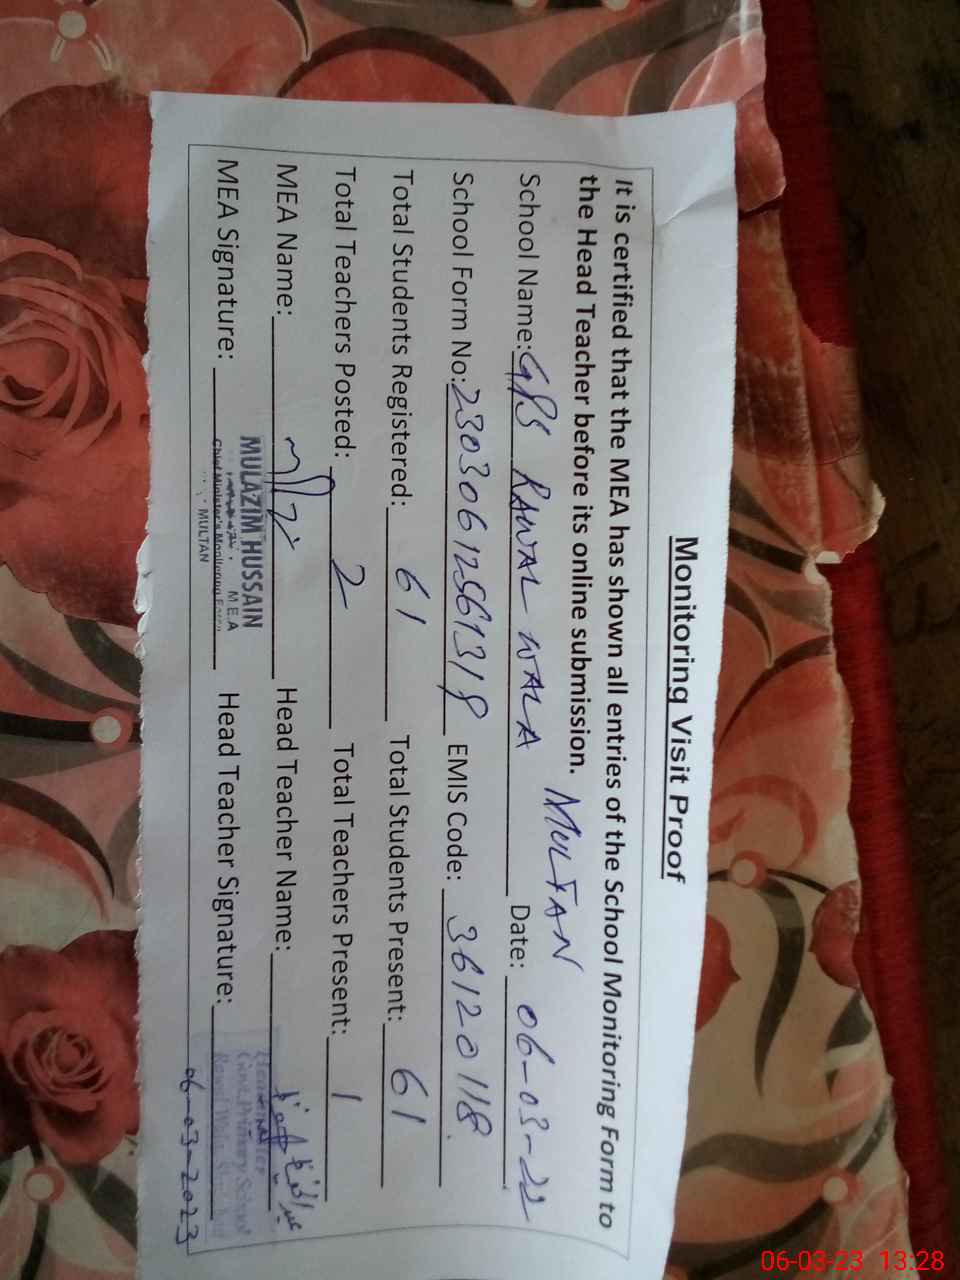 Monitoring Visit Proof
It is certified that the MEA has shown all entries of the School Monitoring Form to
the Head Teacher before its online submission. MULTAN
School Name: GPS RAWAL WALA Date: 06-03-22
School Form No: EMIS Code: 36120118.
Total Students Registered: 61 Total Students Present: 61
Total Teachers Posted: 2 Total Teachers Present: 1
MEA Name: Head Teacher Name:
MEA Signature: Head Teacher Signature:
MULAZIM HUSSAIN
M.E.A
Chief Minister's Monitoring Force
MULTAN
Govt. Primary School
06-03-2023
06-03-23 13:28